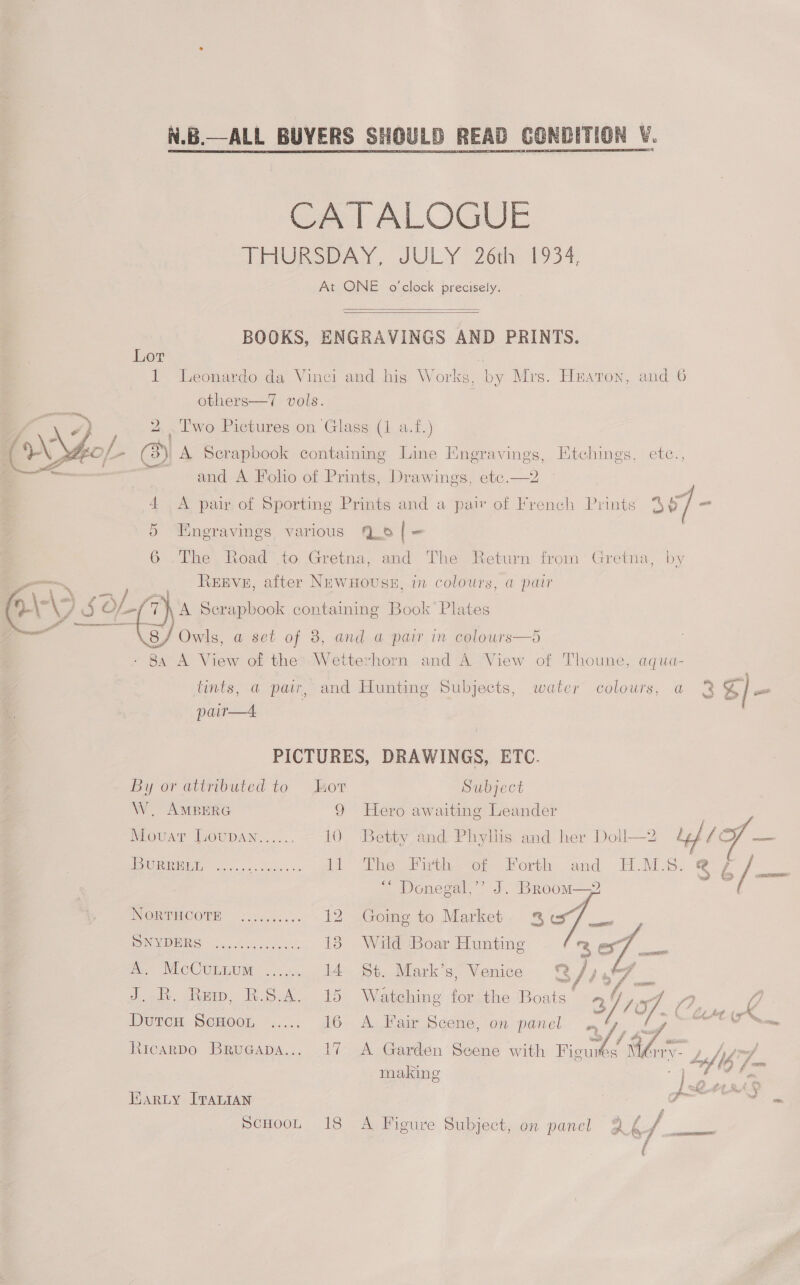 N.B.—ALL BUYERS SHOULD READ CONDITION V.
CATALOGUE
THURSDAY, JULY 26th 1934,
At ONE o'clock precisely.
BOOKS, ENGRAVINGS AND PRINTS.
Lot
1 Leonardo da Vinci and his Works, by Mrs. Heaton, and 6
others—7 vols.
2 Two Pictures on Glass (1 a.f.)
3 A Scrapbook containing Line Engravings, Etchings, etc.,
and A Folio of Prints, Drawings, etc.—2
4 A pair of Sporting Prints and a pair of French Prints
5 Engravings various
6 The Road to Gretna, and The Return from Gretna, by
Reeve, after Newhouse, in colours, a pair
7 A Scrapbook containing Book Plates
8 Owls, a set of 3, and a pair in colours—5
8a A View of the Wetterhorn and A View of Thoune, aqua-
tints, a pair, and Hunting Subjects, water colours, a
pair—4
PICTURES, DRAWINGS, ETC.
By or attributed to Lot Subject
W. Amberg 9 Hero awaiting Leander
Mouat Loudan...... 10 Betty and Phyllis and her Doll—2
Burrell 11 The Firth of Forth and H.M.S.
“Donegal,” J. Broom—2
Northcote 12 Going to Market
Snyders 13 Wild Boar Hunting
A. McCullum ...... 14 St. Mark's, Venice
J. R. Reid, R.S.A. 15 Watching for the Boats
Dutch School ..... 16 A Fair Scene, on panel
Ricardo Brugada... 17 A Garden Scene with Figures Merry-
making
Early Italian
School 18 A Figure Subject, on panel